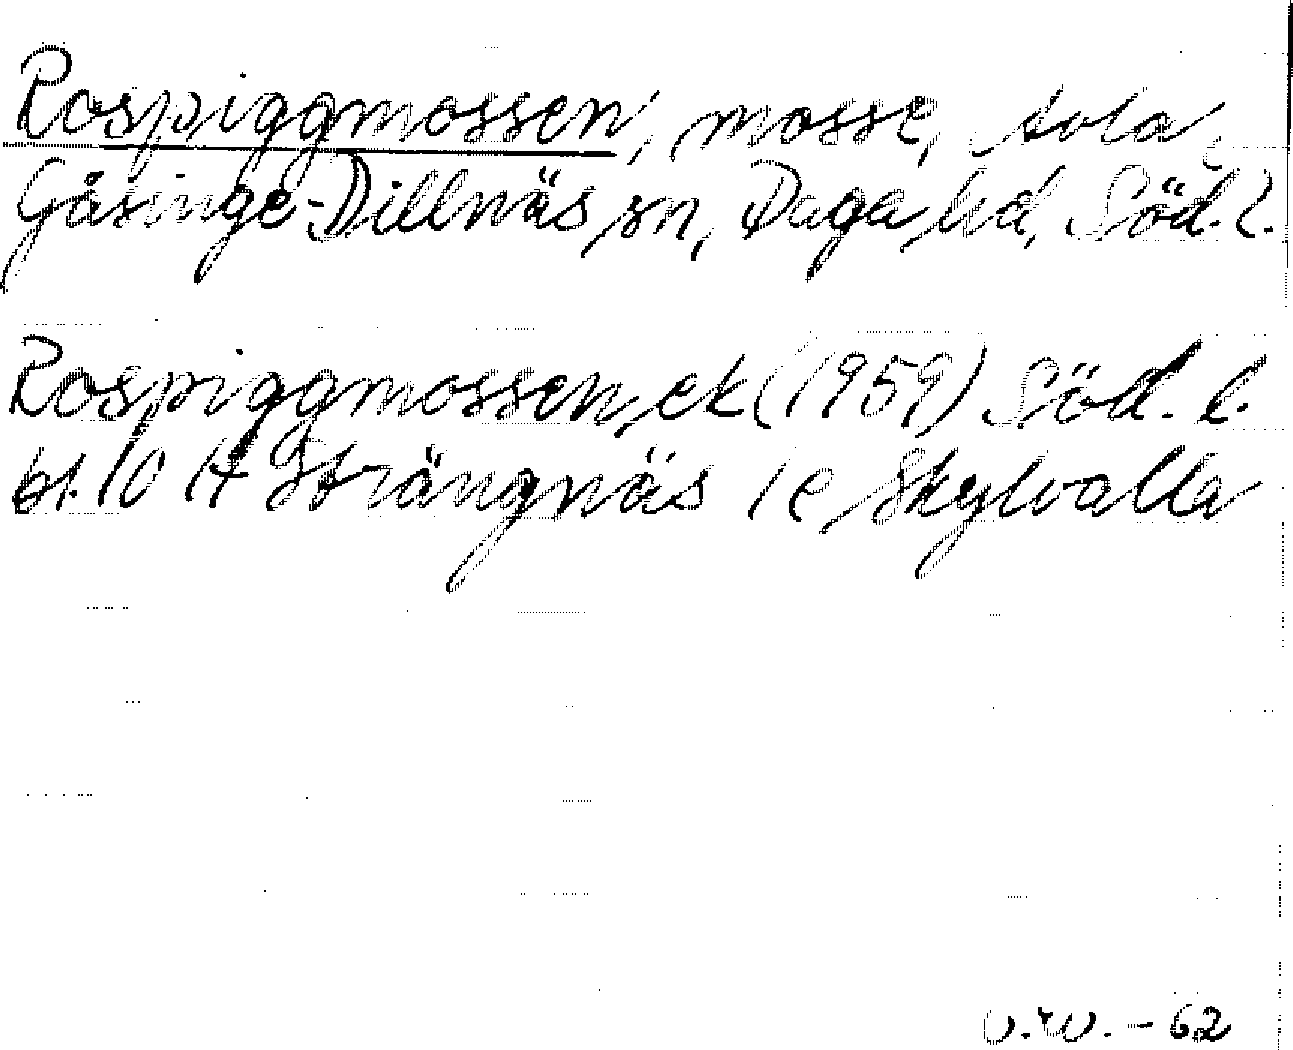 Rospiggmossen, mosse, Avla,
Gåsinge-Dillnäs sn, Daga hd, Söd. l.
Rospiggmossen, ek (1959) Söd. l.
bl. 10 H Strängnäs 1 e Skylvalla
V.W. - 62